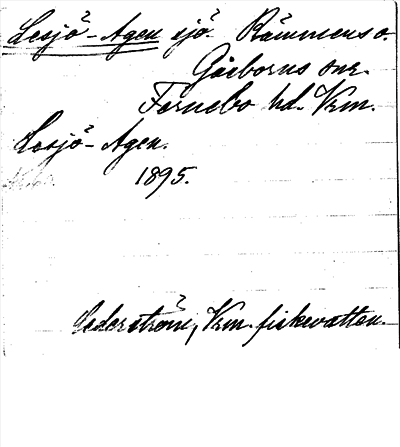 Lesjö-Agen sjö Rämmens o.
Gåsborns snr.
Fernebo hd. Vrm.
Lesjö-Agen.
1895.
Cederström, Vrm. fiskevatten.